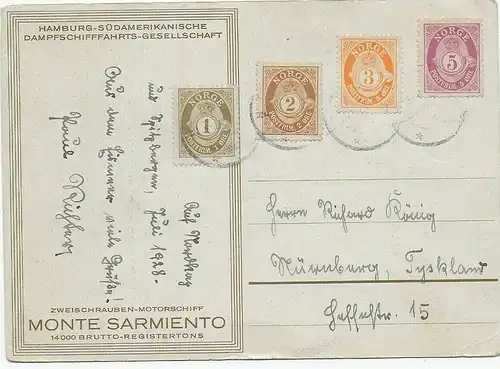 HAMBURG-SÜDAMERIKANISCHE
DAMPFSCHIFFFAHRTS-GESELLSCHAFT
Auf Nordkap
und Spitzbergen, Juli 1928.
Aus dem hohen viele Grüße!
Hans
ZWEISCHRAUBEN-MOTORSCHIFF
MONTE SARMIENTO
14000 BRUTTO-REGISTERTONS
NORGE
1
POSTFRIM. 1 ØRE
NORGE
2
POSTFRIM. 2 ØRE
NORGE
3
POSTFRIM. 3 ØRE
NORGE
5
POSTFRIM. 5 ØRE
Herrn Richard König
Nürnberg, Tyskland
15